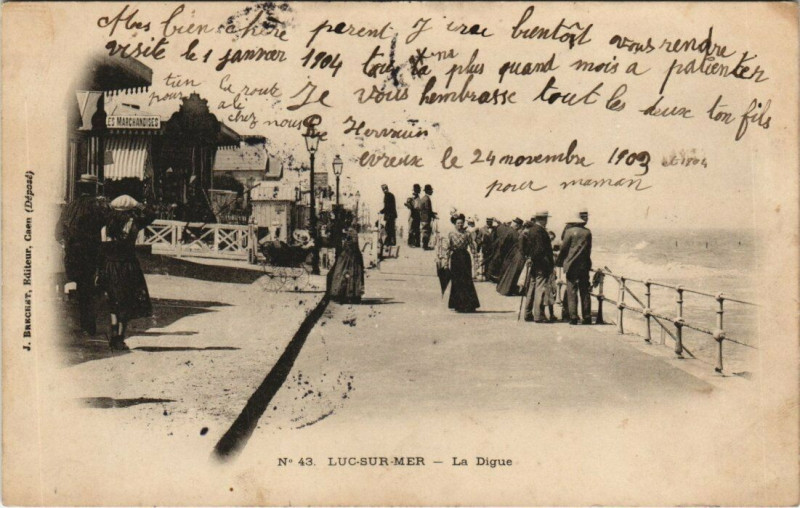 Mes bien chère parent J irai bientôt vous rendre
visite le 1 janvier 1904 tout plus quand mois a patienter
tien
pour
chez nous
Je vous hembrasse tout les deux ton fils
Rue
evreux le 24 novembre 1903
pour maman
LES MARCHANDISES
J. BRECHET, Editeur, Caen (Déposé)
N° 43. LUC-SUR-MER — La Digue